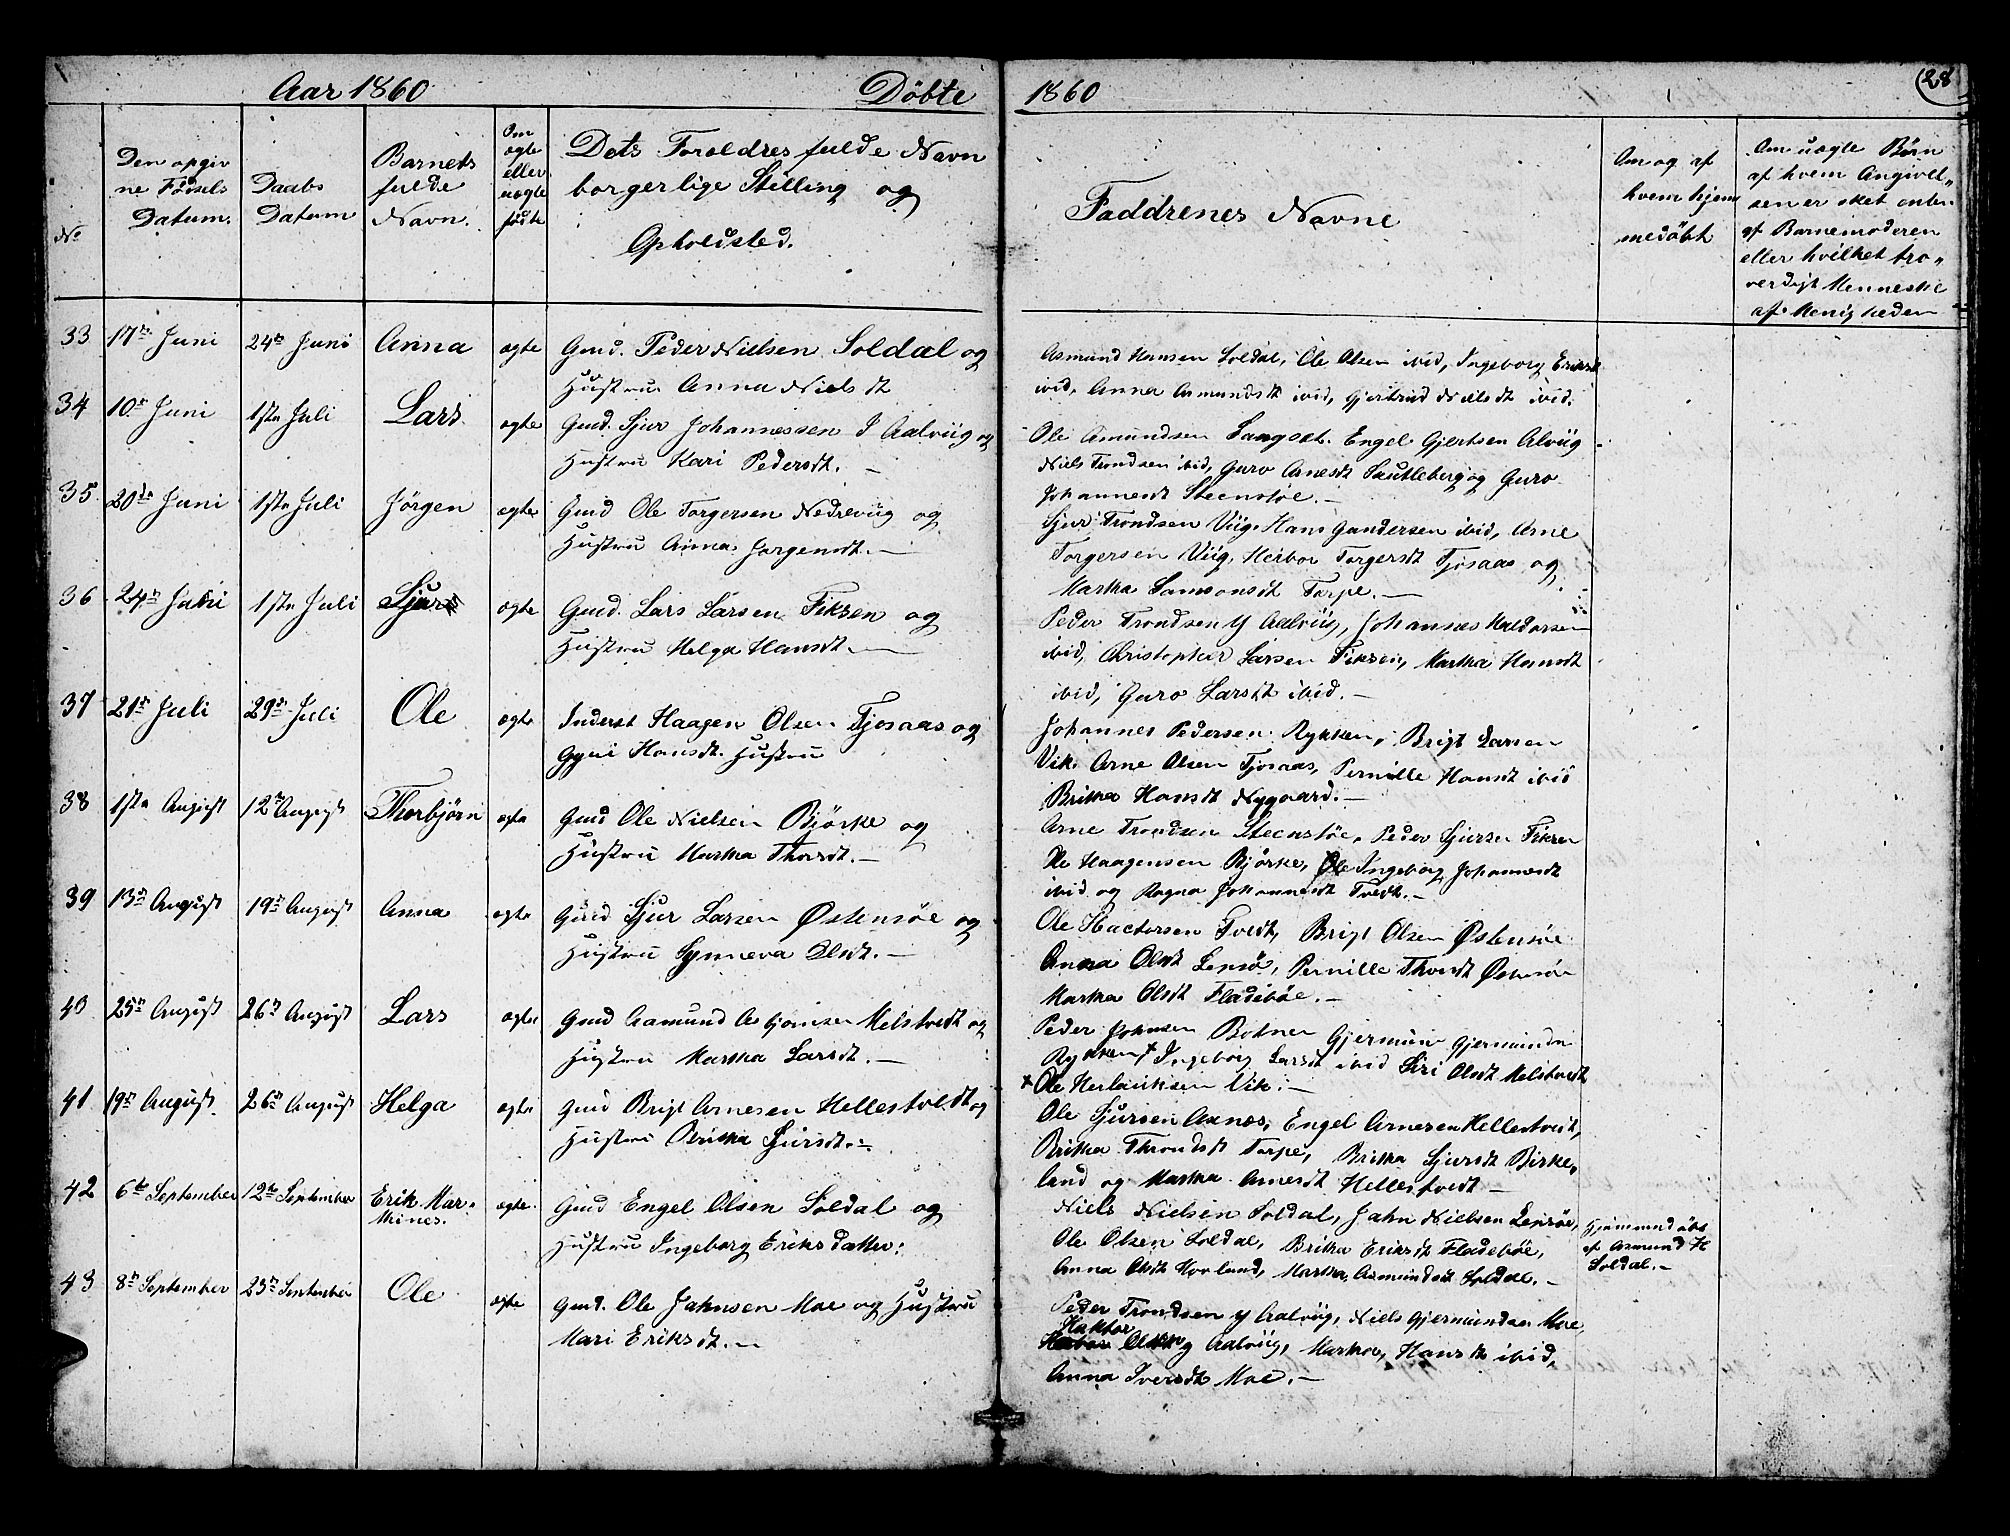 Aar 1860 Döbte 1860 28
No
Den opgiv
ne Fødsels
Datum.
Daabs
Datum
Barnets
fulde
Navn.
Om
ægte
eller
uægte
födte
Dets Foreldres fulde Navn
borgerlige Stilling og
Opholdsted.
Faddrenes Navne
Om og af
hvem hjem
medöbt
Om uægte Børn
af hvem Angivel„
sen er sket enten
af Barnemoderen
eller hvilket tro„
verdigt Menneske
af Menigheden
33 17de Juni 24de Juni Anna ægte Gmd. Peder Nielsen Soldal og
Hustru Anna Nielsdt
Asmund Hansen Soldal, Ole Olsen ibid, Ingeborg Eriksdt
ibid, Anna Asmundsdt ibid, Gjertrud Nielsdt ibid.
34 10de Juni 1ste Juli Lars ægte Gmd. Sjur Johannessen I Aalviig og
Hustru Kari Pedersdt. —
Ole Amundsen Sangset. Engel Gjertsen Alviig
Niels Trondsen ibid, Guro Arnesdt Sautleberg og Guro
Johannesdt Steenstøe. —
35 20de Juni 1ste Juli Jörgen ægte Gmd Ole Torgersen Nedreviig og
Hustru Anna Jørgensdt. —
Sjur Trondsen Viig. Hans Gundersen ibid, Arne
Torgersen Viig, Herbor Torgersdt Tjosaas og
Martha Samsonsdt Torpe. —
36 24de Juni 1ste Juli Sjur ægte Gmd. Lars Larsen Fiksen og
Hustru Helga Hansdt —
Peder Trondsen Y Aalviig, Johannes Haldorsen
ibid, Christopher Larsen Fiksen, Martha Hansdt
ibid, Guro Larsdt ibid. —
37 21de Juli 29de Juli Ole ægte Inderst Haagen Olsen Tjosaas og
Gyri Hansdt. Hustru
Johannes Pedersen Rykken, Brigt Larsen
Vik. Arne Olsen Tjosaas, Pernille Hansdt ibid
Britha Hansdt Nygaard. —
38 1ste August 12te August Thorbjörn ægte Gmd Ole Nielsen Björke og
Hustru Martha Thorsdt. —
Arne Trondsen Steenstøe, Peder Sjursen Fiksen
Ole Haagensen Björke, Ole Ingeborg Johannesdt
ibid og Ragna Johannesdt Tvedt. —
39 13de August 19de August Anna ægte Gmd Sjur Larsen Østensøe og
Hustru Synneva Olsdt. —
Ole Hactorsen Tvedt, Brigt Olsen Østensøe
Anna Olsdt Lensø, Pernille Thorsdt Østensøe
Martha Olsdt Fladebøe. —
40 25de August 26de August Lars ægte Gmd Aamund Asbjørnsen Melstvedt og
Hustru Martha Larsdt. —
Peder Johnsen Botnen Gjermun Gjermundsn
Rykken + Ingeborg Larsdt ibid Siri Olsdt Melstvedt
+ Ole Herlauksen Vik. —
41 19de August 26de August Helga ægte Gmd Brigt Arnesen Hellestvedt og
Hustru Britha Sjursdt. —
Ole Sjursen Axnes, Engel Arnesen Hellestvedt,
Britha Throndsdt Torpe, Britha Sjursdt Birke„
land og Martha Arnesdt Hellestvedt —
42 6te September 12te September Erik Mar„
thines. ægte Gmd Engel Olsen Soldal og
Hustru Ingeborg Eriksdatter.
Niels Nielsen Soldal, Jahn Nielsen Lensøe,
Ole Olsen Soldal, Britha Eriksdt Fladebøe,
Anna Olsdt Hovland, Martha Asmundsdt Soldal. —
Hjemmedöbt
af Asmund H
Soldal. —
43 8de September 23de September Ole ægte Gmd. Ole Jahnsen Moe og Hustru
Mari Eriksdt. —
Peder Trondsen Y Aalviig, Niels Gjermundsen Moe,
Haktor
Olsen Y Aalviig, Martha Hansdt ibid,
Anna Iversdt Moe. —